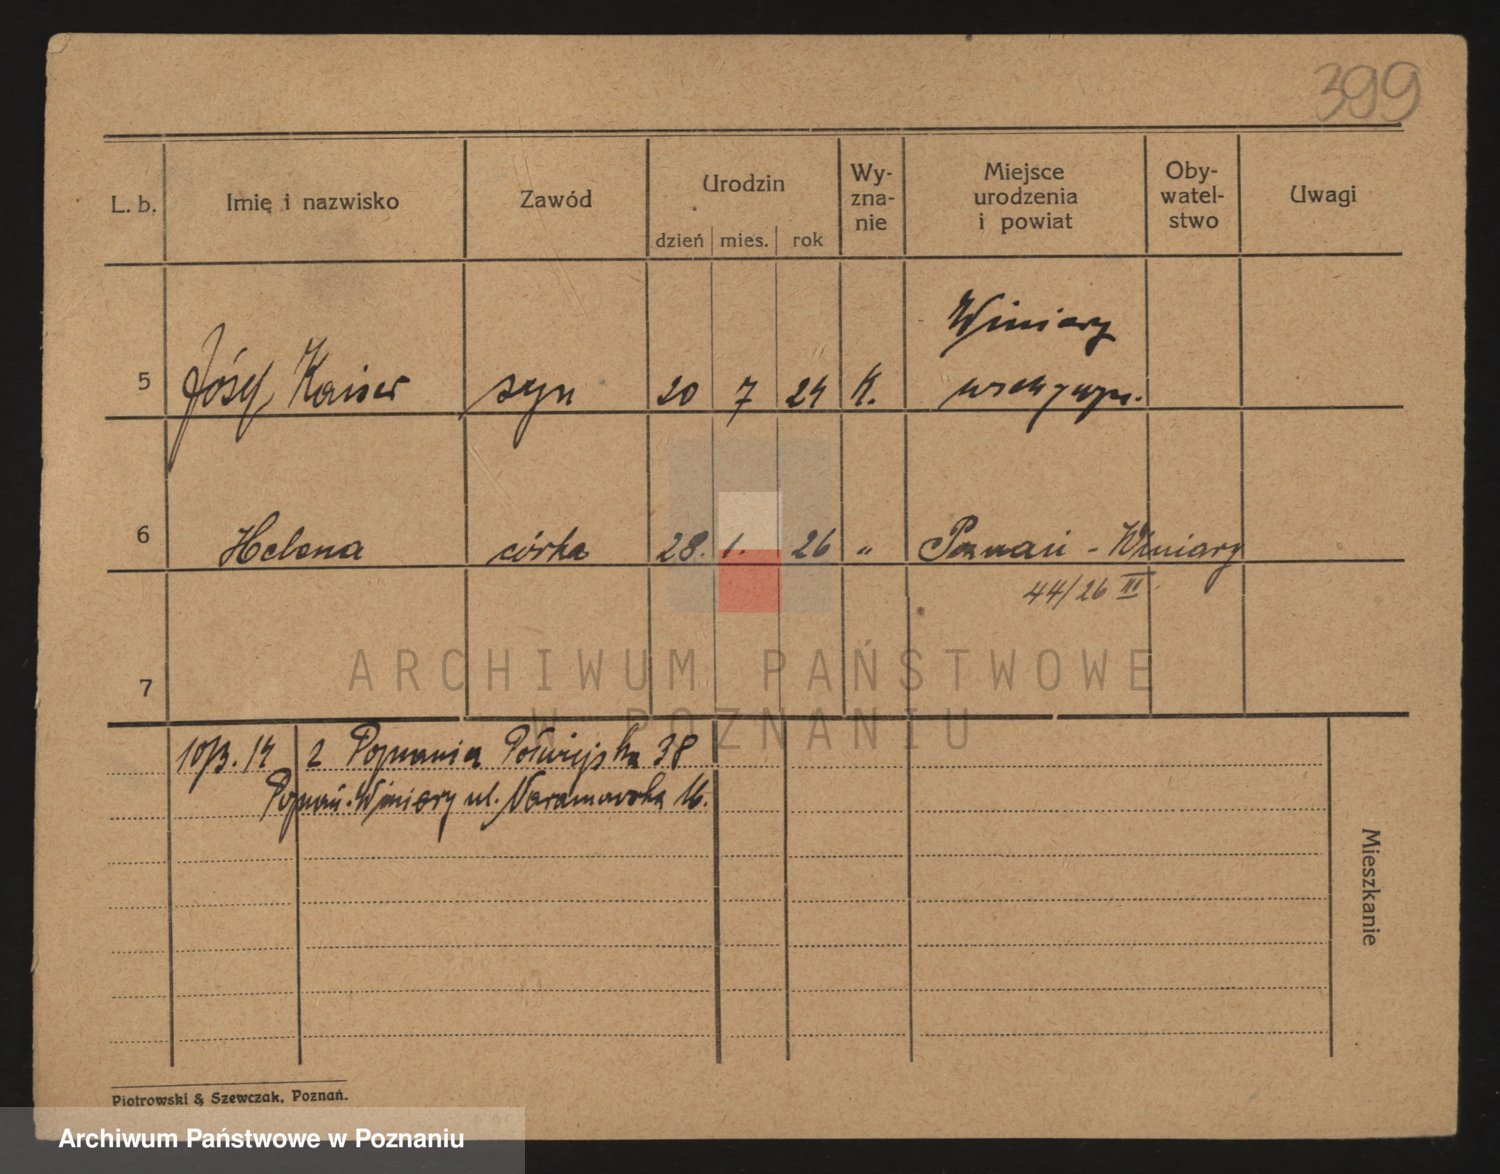 399
L. b. Imię i nazwisko Zawód Urodzin Wy-zna-nie Miejsce urodzenia i powiat Oby-watel-stwo Uwagi
dzień mies. rok
Winiary
5 Józef Kaiser syn 20 7 24 K.
6 Helena córka 28. 1. 26 „ Poznań - Winiary
44/26 III
7
ARCHIWUM PAŃSTWOWE
W POZNANIU
10/3. 14 z Poznania Półwiejska 38
Poznań-Winiary ul. 16.
Mieszkanie
Piotrowski & Szewczak, Poznań.
Archiwum Państwowe w Poznaniu